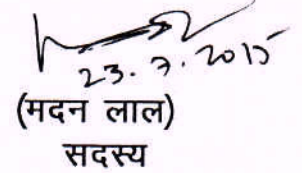 23.7.2015
(मदन लाल)
सदस्य